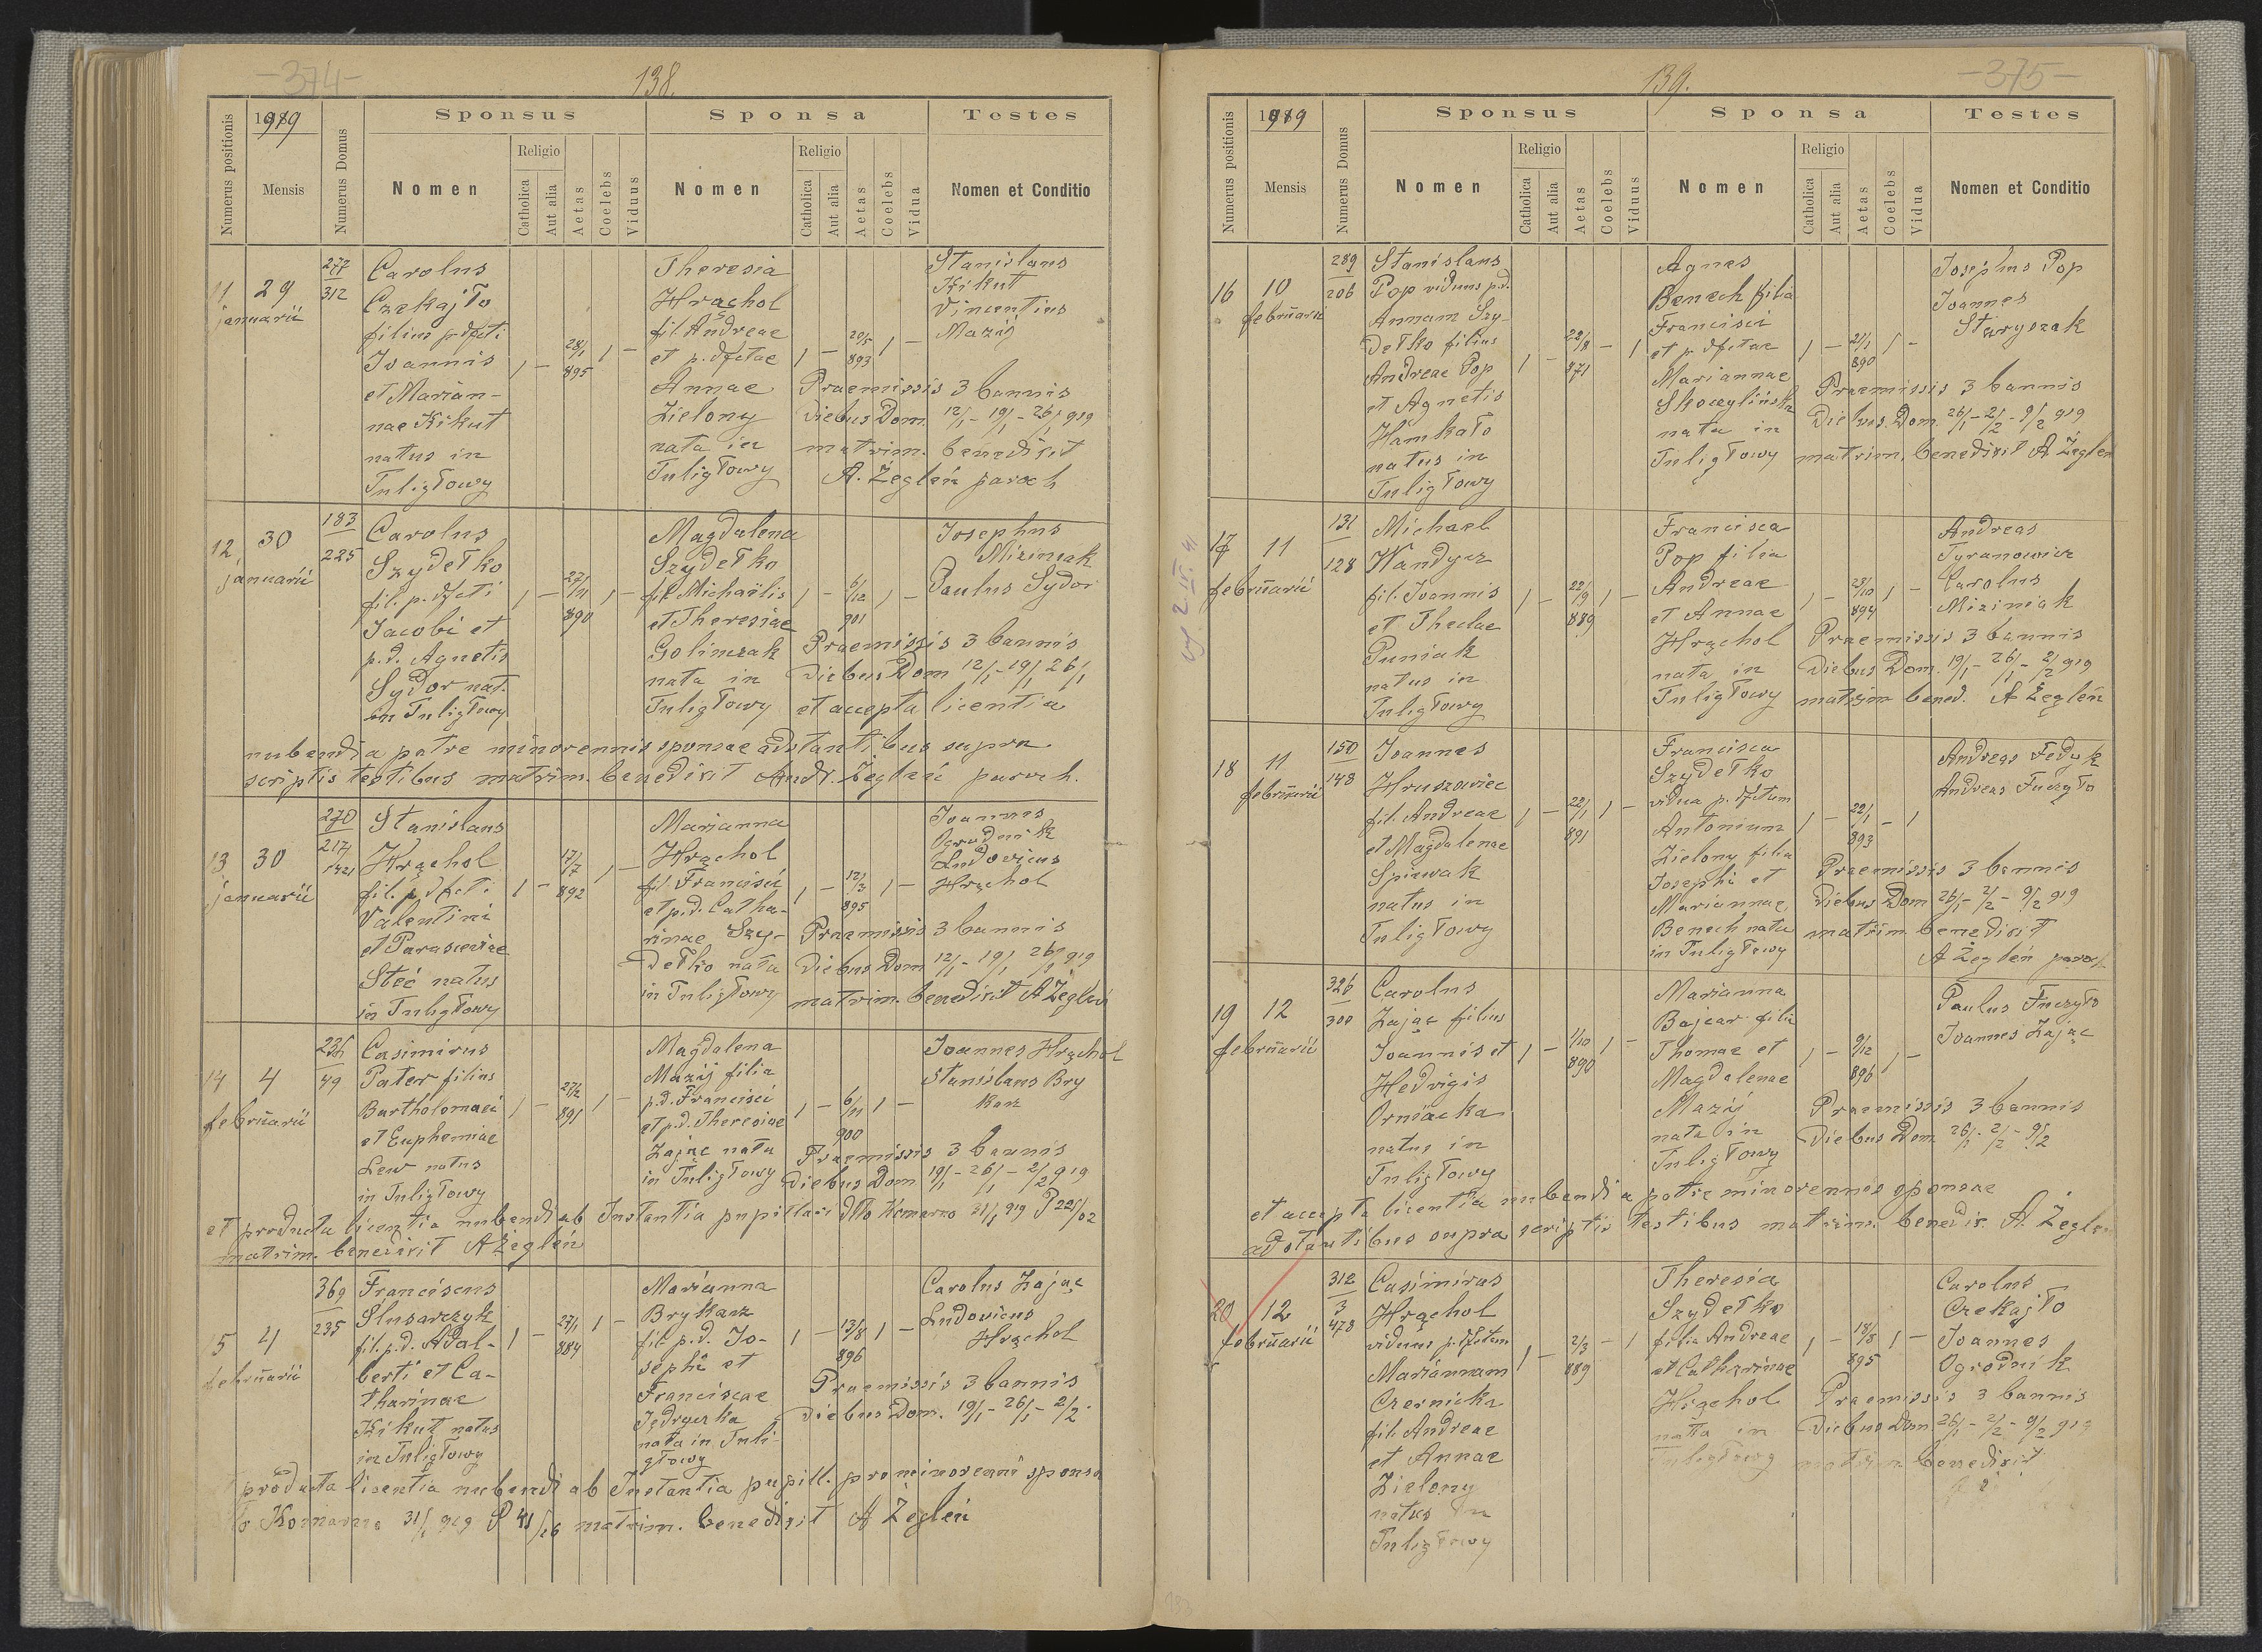 -374-
138.
Numerus positionis
1919
Mensis
Numerus Domus
Sponsus
Nomen
Religio
Catholica
Aut alia
Aetas
Coelebs
Viduus
Sponsa
Nomen
Religio
Catholica
Aut alia
Aetas
Coelebs
Vidua
Testes
Nomen et Conditio
11
29
januarii
277
312
Carolus
Czekajło
filius p. dfcti
Joannis
et Marian-
nae Kikut
natus in
Tuligłowy
1 - 28/1 895 1 -
Theresia
Hrąchol
fil. Andreae
et p. dfctae
Annae
Zielony
nata in
Tuligłowy
1 - 20/5 893 1 -
Stanislaus
Kikut
Vincentius
Mazij
Praemissis 3 bannis
diebus Dom. 12/1 - 19/1 - 26/1 919
matrim. benedixit
A. Żegleń paroch
12
30
januarii
183
225
Carolus
Szydełko
fil. p. dfcti
Jacobi et
p. d. Agnetis
Sydor nat.
in Tuligłowy
1 - 27/11 890 1 -
Magdalena
Szydełko
fil. Michaëlis
et Theresiae
Golinczak
nata in
Tuligłowy
1 - 6/12 901 1 -
Josephus
Miziniak
Paulus Sydor
Praemissis 3 bannis
diebus Dom 12/1 - 19/1 26/1
et accepta licentia
nubendi a patre minorennis sponsae adstantibus supra
scriptis testibus matrim. benedixit Andr. Żegleń paroch.
13
30
januarii
270
217
Stanislaus
Hrąchol
fil. p. dfcti
Valentini
et Parasceviae
Steć natus
in Tuligłowy
1 - 17/7 892 1 -
Marianna
Hrąchol
fil. Francisci
et p. d. Catha-
rinae Szy-
dełko nata
in Tuligłowy
1 - 12/3 895 1 -
Joannes
Ogrodnik
Ludovicus
Hrąchol
Praemissis 3 bannis
diebus Dom 12/1 - 19/1 26/1 919
matrim. benedixit A Żegleń
14
4
februarii
236
49
Casimirus
Pater filius
Bartholomaei
et Euphemiae
Lew natus
in Tuligłowy
1 - 27/2 891 1 -
Magdalena
Mazij filia
p. d. Francisci
et p. d. Theresiae
Zając nata
in Tuligłowy
1 - 6/11 900 1 -
Joannes Hrąchol
Stanislaus Bry
karz
Praemissis 3 bannis
diebus Dom 19/1 - 26/1 - 2/2 919
et producta licentia nubendi ab Instantia pupillari dtto Komarno 31/1 919 P 22/02
matrim. benedixit A Żegleń
5
4
februarii
369
235
Franciscus
Slusarczyk
fil. p. d. Adal-
berti et Ca-
tharinae
Kikut natus
in Tuligłowy
1 - 27/1 884 1 -
Marianna
Brykarz
fil. p. d. Jo-
sephi et
Franciscae
Jędryczka
nata in Tuli-
głowy
1 - 13/8 896 1 -
Carolus Zając
Ludovicus
Hrąchol
Praemissis 3 bannis
diebus Dom. 19/1 - 26/1 - 2/2
producta licentia nubendi ab Instantia pupill. pro minorenni sponsa
to Komarno 31/1 919 P 41/16 matrim. benedixit A Żegleń
-375-
139.
Numerus positionis
1919
Mensis
Numerus Domus
Sponsus
Nomen
Religio
Catholica
Aut alia
Aetas
Coelebs
Viduus
Sponsa
Nomen
Religio
Catholica
Aut alia
Aetas
Coelebs
Vidua
Testes
Nomen et Conditio
16
10
februarii
289
206
Stanislaus
Pop viduus p. d.
Annam Szy-
dełko filius
Andreae Pop
et Agnetis
Hamkało
natus in
Tuligłowy
1 - 22/8 871 - 1
Agnes
Benech filia
Francisci
et p. dfctae
Mariannae
Skoczylińska
nata in
Tuligłowy
1 - 21/1 890 1 -
Josephus Pop
Joannes
Staryszak
Praemissis 3 bannis
diebus Dom. 26/1 - 2/2 - 9/2 919
matrim. benedixit A Żegleń
17
11
februarii
131
128
Michael
Wandycz
fil. Joannis
et Theclae
Puniak
natus in
Tuligłowy
1 - 22/9 889 1 -
Francisca
Pop filia
Andreae
et Annae
Hrąchol
nata in
Tuligłowy
1 - 28/10 894 1 -
Andreas
Tyranowicz
Carolus
Miziniak
Praemissis 3 bannis
diebus Dom. 19/1 - 26/1 - 2/2 919
matrim bened. A Żegleń
18
11
februarii
150
148
Joannes
Hruszowiec
fil. Andreae
et Magdalenae
Spiewak
natus in
Tuligłowy
1 - 22/1 891 1 -
Francisca
Szydełko
vidua p. dfctum
Antonium
Zielony filia
Josephi et
Mariannae
Benech nata
in Tuligłowy
1 - 22/1 893 - 1
Andreas Feduk
Andreas Fuczyło
Praemissis 3 bannis
diebus Dom 26/1 - 2/2 - 9/2 919
matrim. benedixit
A Żegleń paroch
19
12
februarii
326
300
Carolus
Zając filius
Joannis et
Hedvigis
Orniacka
natus in
Tuligłowy
1 - 1/10 890 1 -
Marianna
Bajcar filia
Thomae et
Magdalenae
Mazij
nata in
Tuligłowy
1 - 9/12 896 1 -
Paulus Fuczyło
Joannes Zając
Praemissis 3 bannis
diebus Dom 26/1 - 2/2 - 9/2
et accepta licentia nubendi a patre minorennis sponsae
adstantibus supra scriptis testibus matrim. benedix. A. Żegleń
20
12
februarii
312
3
478
Casimirus
Hrąchol
viduus p. dfctam
Mariannam
Czernicka
fil. Andreae
et Annae
Zielony
natus in
Tuligłowy
1 - 2/3 889 - 1
Theresia
Szydełko
filia Andreae
et Catharinae
Hrąchol
nata in
Tuligłowy
1 - 18/8 895 1 -
Carolus
Czekajło
Joannes
Ogrodnik
Praemissis 3 bannis
diebus Dom 26/1 - 2/2 - 9/2 919
matrim benedixit